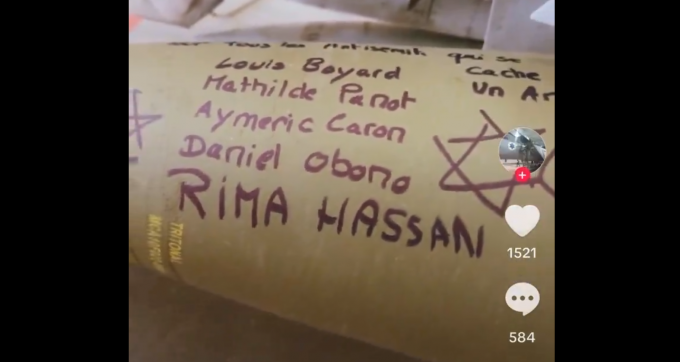 tous les Antisemit qui se
Cache
Un Ar
Louis Boyard
Mathilde Panot
Aymeric Caron
Daniel Obono
RIMA HASSAN
TRITONAL
1521
584